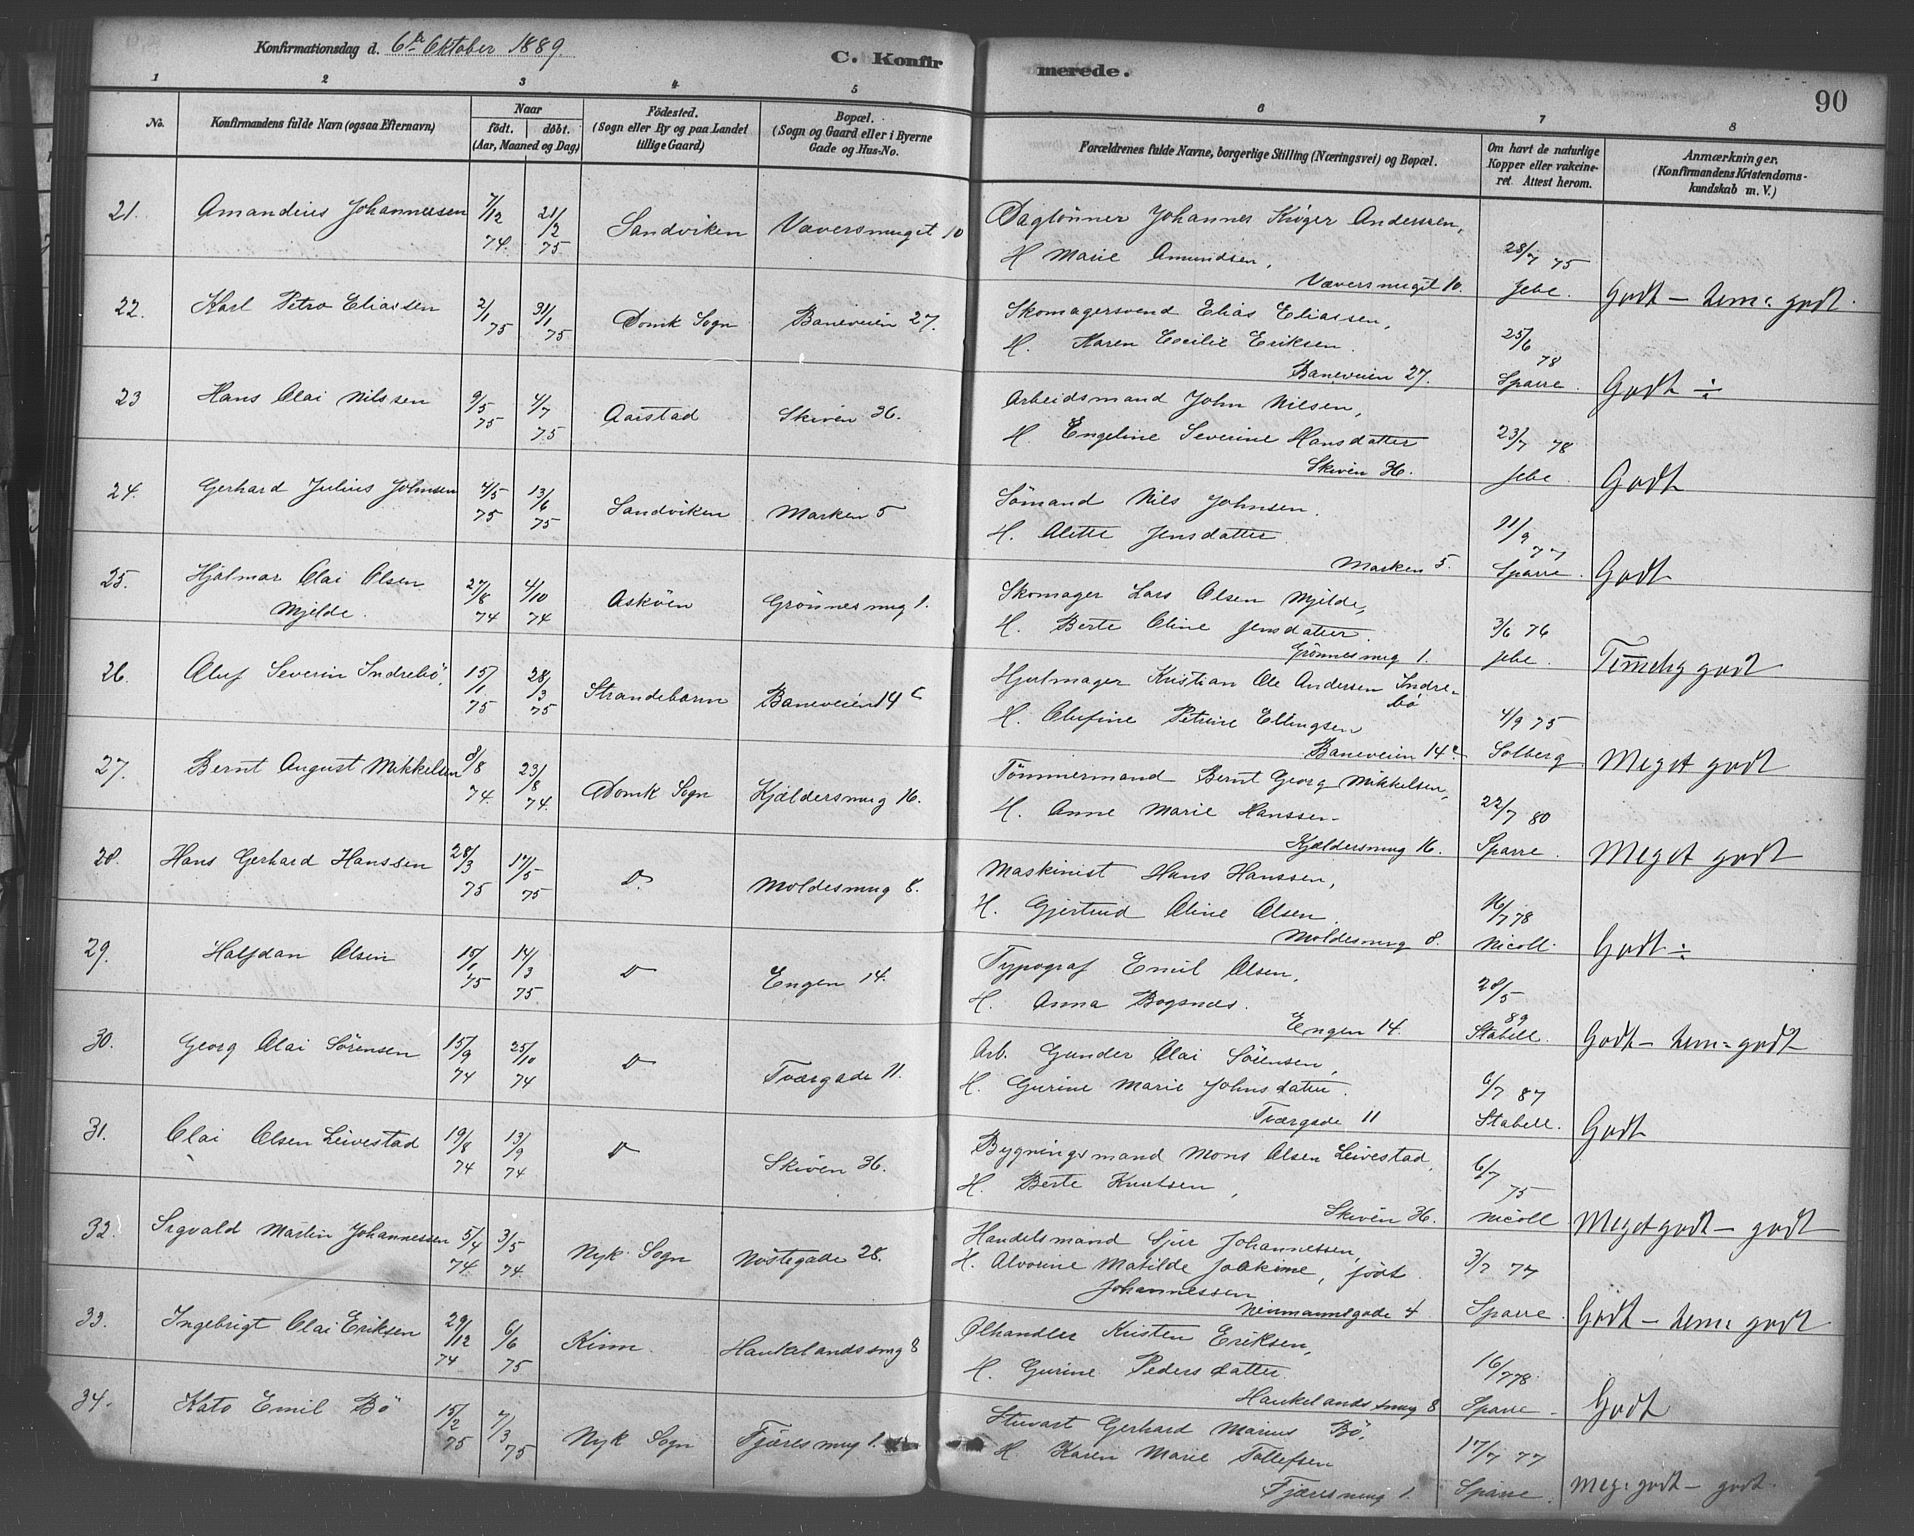 Konfirmationsdag d. 6te Oktober 1889.
C. Konfirmerede.
90
1 2 3 4 5 6 7 8
No.
Konfirmandens fulde Navn (ogsaa Efternavn)
Naar
født. døbt.
(Aar, Maaned og Dag)
Fødested.
(Sogn eller By og paa Landet
tillige Gaard)
Bopæl.
(Sogn og Gaard eller i Byerne
Gade og Hus-No.
Forældrenes fulde Navne, borgerlige Stilling (Næringsvei) og Bopæl.
Om havt de naturlige
Kopper eller vakcine-
ret. Attest herom.
Anmærkninger.
(Konfirmandens Kristendoms-
kundskab m. V.)
21. Amandius Johannessen 7/12 74. 21/2 75 Sandviken Væversmuget 10
Dagtønner Johannes Krøger Anderssen,
H Marie Amundsen,
Væversmuget 10. 28/7 75 Jebe. Godt – tem: godt.
22. Karl Petro Eliassen 2/1 75 31/1 75 Domk Sogn Baneveien 27.
Skomagersvend Elias Eliassen,
H. Karen Cecilie Eriksen.
Baneveien 27. 25/6 78 Sparre. Godt ÷
23 Hans Olai Nilssen 9/5 75 4/7 75 Aarstad Skivén 36.
Arbeidsmand John Nilsen,
H Engeline Severine Hansdatter
Skivén 36. 23/7 78 Jebe. Godt
24. Gerhard Julius Johnsen 4/5 75 13/6 75 Sandviken Marken 5
Sømand Nils Johnsen.
H. Alette Jensdatter
Marken 5. 21/9 77 Sparre. Godt
25. Hjalmar Olai Olsen
Mjelde. 27/8 74 4/10 74 Askøen Grønnesmug 1.
Skomager Lars Olsen Mjelde,
H. Berte Oline Jensdatter.
Grønnesmug 1. 3/6 76 Jebe. Temelig godt
26. Oluf Severin Indrebø. 15/1 75 28/3 75 Strandebarm Baneveien 14 c
Hjulmager Kristian Ole Andersen Indre-
bø
H. Olufine Petrine Ellingsen
Baneveien 14 c 4/9 75 Solberg Meget godt
27. Bernt August Mikkelsen 8/8 74. 23/8 74. Domk Sogn Kjældersmug 16.
Tømmermand Bernt Georg Mikkelsen,
H. Anne Marie Hanssen.
Kjældersmug 16. 22/7 80 Sparre. Meget godt
28. Hans Gerhard Hanssen 28/3 75 17/5 75 D. Moldesmug 8.
Maskinist Hans Hanssen,
H. Gjertrud Oline Olsen.
Moldesmug 8. 16/7 78 Nicoll. Godt ÷
29. Halfdan Olsen 15/1 75 14/3 75 D Engen 14.
Typograf Emil Olsen,
H. Anna Bogsnæs.
Engen 14. 28/5 89 Stabell. Godt – tem: godt
30. Georg Olai Sørensen 15/9 74 25/10 74 D Tværgade 11.
Arb. Gunder Olai Sørensen,
H. Gurine Marie Johnsdatter.
Tværgade 11 6/7 87 Stabell. Godt
31. Olai Olsen Leivestad 19/8 74 13/9 74 D Skivén 36.
Bygningsmand Mons Olsen Leivestad,
H. Berte Knutsen,
Skivén 36. 6/7 75 Nicoll Meget godt – godt
32. Sigvald Martin Johannessen 5/4 74 3/5 74 Nyk. Sogn Nøstegade 28.
Handelsmand Sjur Johannessen,
H. Alvorine Matilde Joakime, født
Johannessen
Neumannsgade 4 3/7 77 Sparre. Godt – tem: godt
33. Ingebrigt Olai Eriksen 29/12 74 6/6 75 Kinn. Haukelandssmug 8
Ølhandler Kristen Eriksen,
H. Gurine Pedersdatter
Haukelandssmug 8 16/7 78. Sparre – Godt
34. Kato Emil Bø 15/2 75 7/3 75 Nyk Sogn Fjæresmug 1.
Stuvart Gerhard Marius Bø,
H. Karen Marie Tollefsen
Fjæresmug 1. 17/7 77 Sparre. Meg: godt – godt.